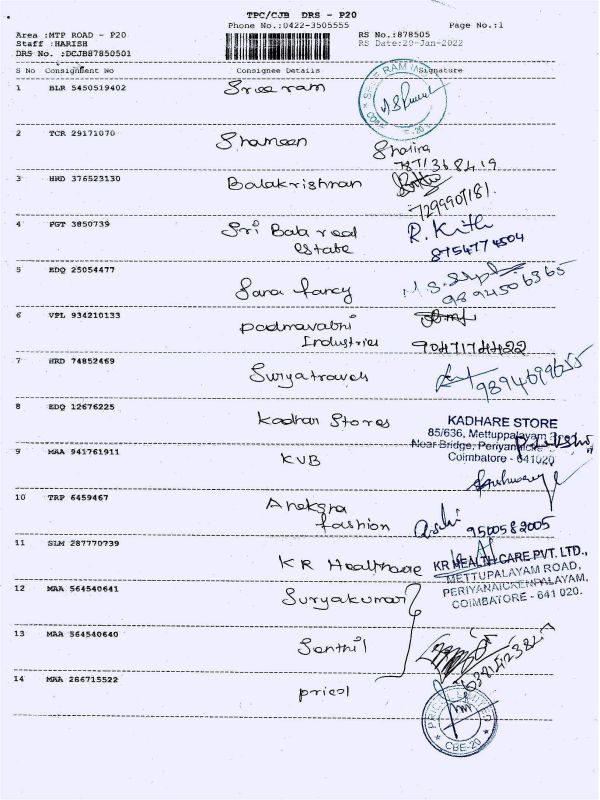 TPC/CJB DRS - P20
Phone No.:0422-3505555 Page No.:1
Area :MTP ROAD - P20 RS No.:878505
Staff :HARISH RS Date:29-Jan-2022
DRS No. :DCJB87850501
S No Consignment No Consignee Details Signature
1 BLR 5450519402 Sree ram
2 TCR 29171070 Shameen
3 HRD 376523130 Balakrishnan
7299901181
4 PGT 3850739 Sri Bala real R. Kith
estate 8754774504
5 EDQ 25054477 Sana fancy
9894506365
6 VPL 934210133 Padmavathi
Industries 9047174422
7 HRD 74852469 Surya travels 9894699655
8 EDQ 12676225 Kadhan Stores KADHARE STORE
85/636, Mettuppalayam
Near Bridge,
Coimbatore - 641020
9 MAA 941761911 KVB
10 TRP 6459467
fashion 9500582005
11 SLM 287770739 KR Healthcare KR HEALTH CARE PVT. LTD.,
METTUPALAYAM ROAD,
PERIYANAICKENPALAYAM,
COIMBATORE - 641 020.
12 MAA 564540641 Suryakumar
13 MAA 564540640 Senthil
14 MAA 286715522 pricol
CBE-20